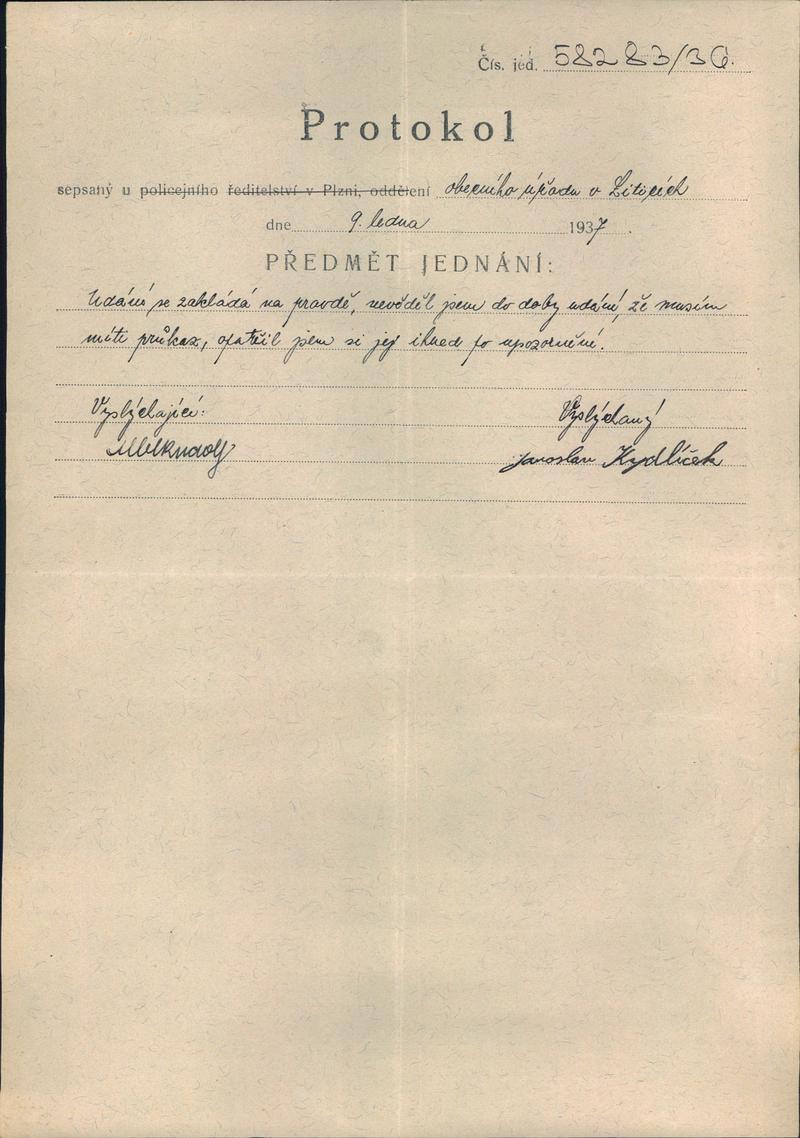 Čís. jed. 58283/36.
Protokol
sepsaný u policejního ředitelství v Plzni, oddělení obecního úřadu v Liticích
dne 9. ledna 1937.
PŘEDMĚT JEDNÁNÍ:
Udání se zakládá na pravdě, nevěděl jsem do doby udání, že musím
míti průkaz, opatřil jsem si jej ihned po upozornění.
Vyslýchající: Vyslýchaný
Jaroslav Kydlíček